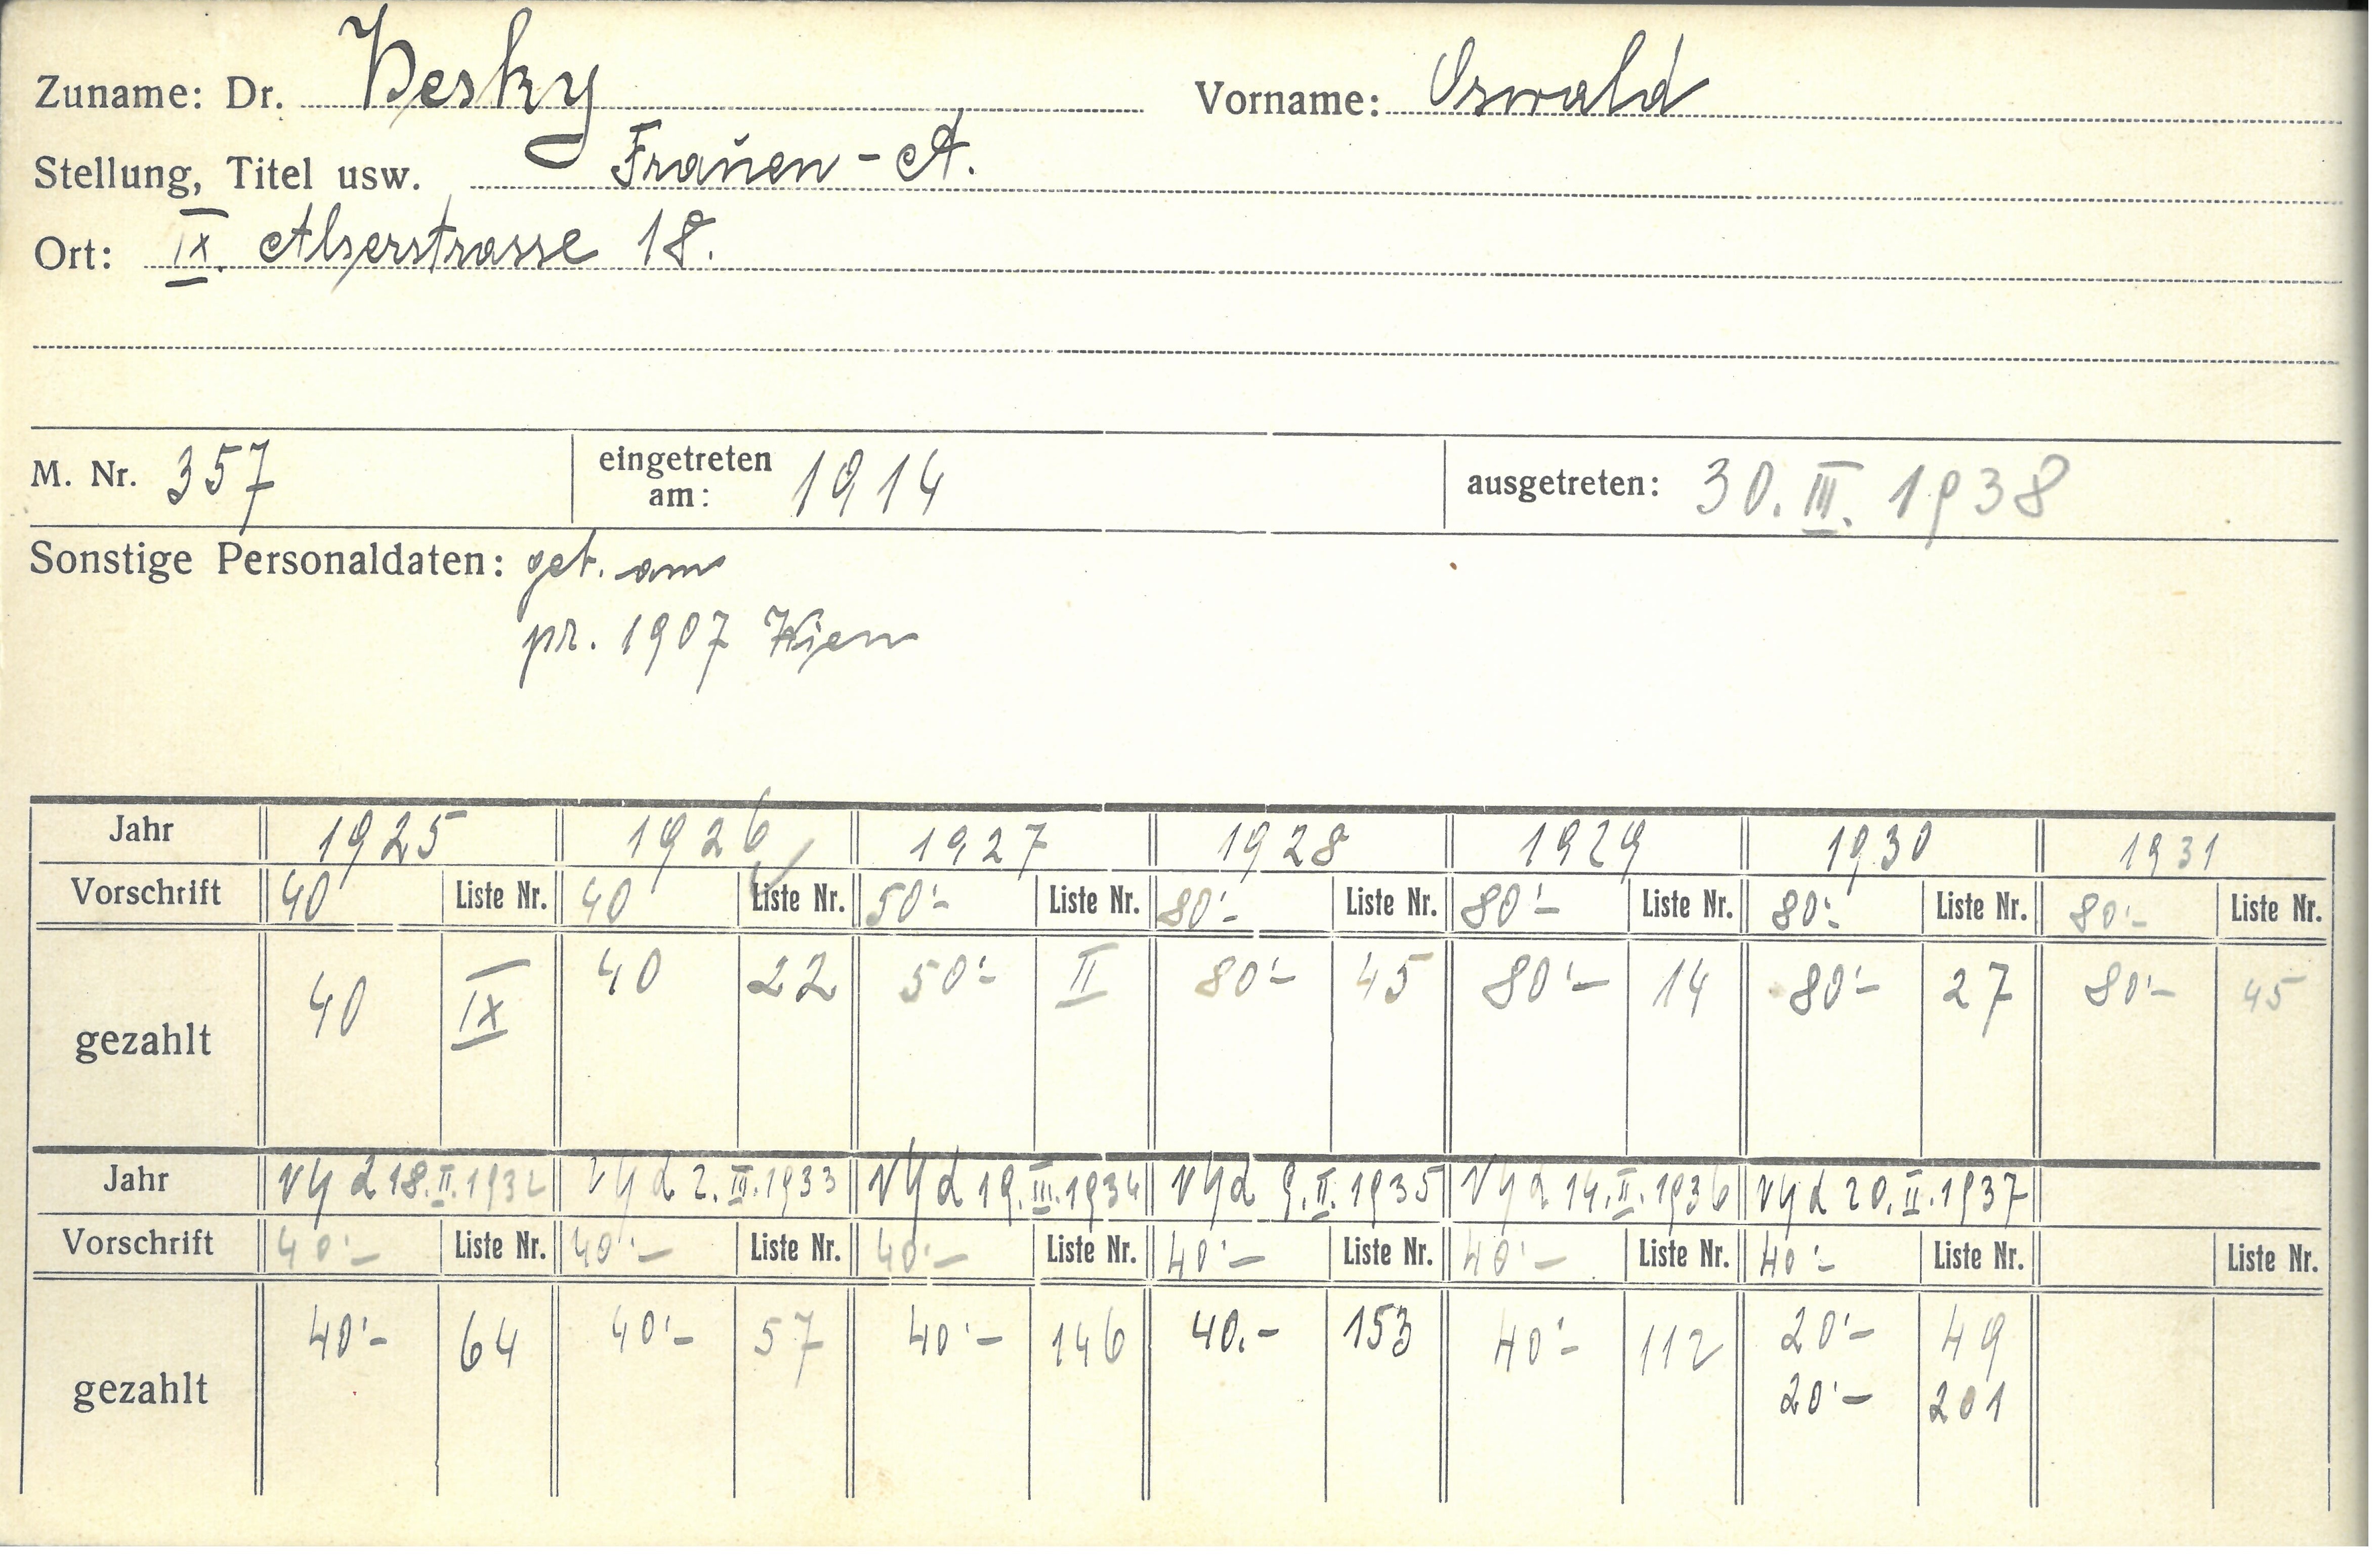 Zuname: Dr. Nesky Vorname: Oswald
Stellung, Titel usw. Frauen-A.
Ort: IX. Alserstrasse 18.
M. Nr. 357 eingetreten am: 1914 ausgetreten: 30. III. 1938
Sonstige Personaldaten: geb. am
pr. 1907 Wien
Jahr 1925 1926 1927 1928 1929 1930 1931
Vorschrift 40 Liste Nr. 40 Liste Nr. 50'- Liste Nr. 80'- Liste Nr. 80'- Liste Nr. 80'- Liste Nr. 80'- Liste Nr.
gezahlt 40 IX 40 22 50'- II 80'- 45 80'- 14 80'- 27 80'- 45
Jahr 18.II.1932 2.III.1933 19.III.1934 9.II.1935 14.II.1936 20.II.1937
Vorschrift 40'- Liste Nr. 40'- Liste Nr. 40'- Liste Nr. 40'- Liste Nr. 40'- Liste Nr. 40'- Liste Nr. Liste Nr.
gezahlt 40'- 64 40'- 57 40'- 146 40.- 153 40'- 112 20'- 49
20'- 201